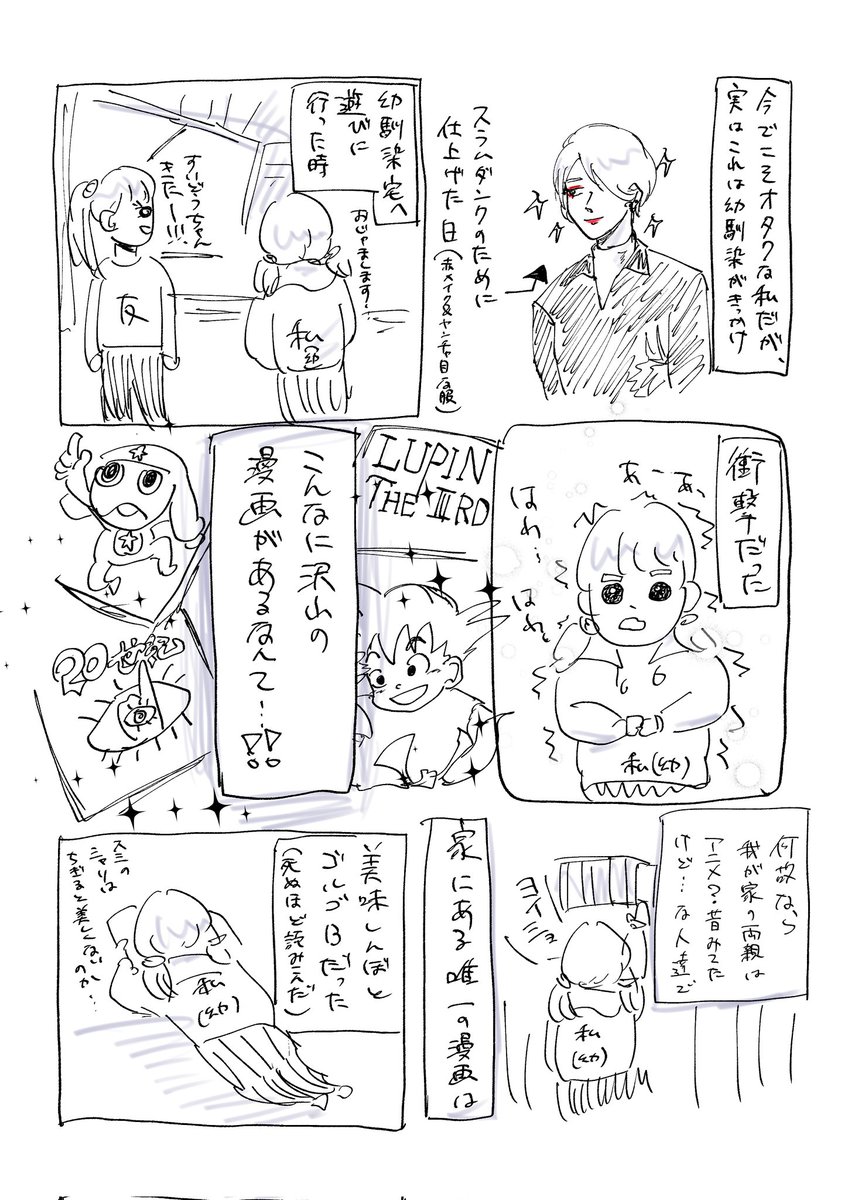 今でこそオタクな私だが、
実はこれは幼馴染がきっかけ
スラムダンクのために
仕上げた日(赤メイク&ヤンチャ目な服)
幼馴染宅へ
遊びに
行った時
おじゃまします!
私
(幼)
きたー!!!
友
衝撃だった
あーあっ
はわ…
はわ…
私(幼)
LUPIN
THE III RD
こんなに沢山の
漫画があるなんて…!!
20世紀
何故なら
我が家の両親は
アニメ?昔みてた
けど…な人達で
ヨイショ
私
(幼)
家にある唯一の漫画は
美味しんぼと
ゴルゴ13だった
(死ぬほど読みこんだ)
シャリは
ちぎると美しくないのか…
私
(幼)